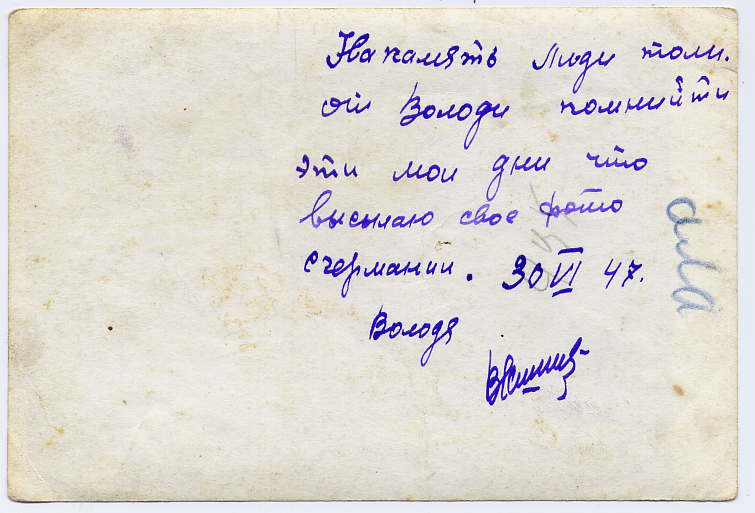 На память Люди толи.
от Володи помнийти
эти мои дни что
высылаю свое фото
с германии. 30 VI 47.
Володя